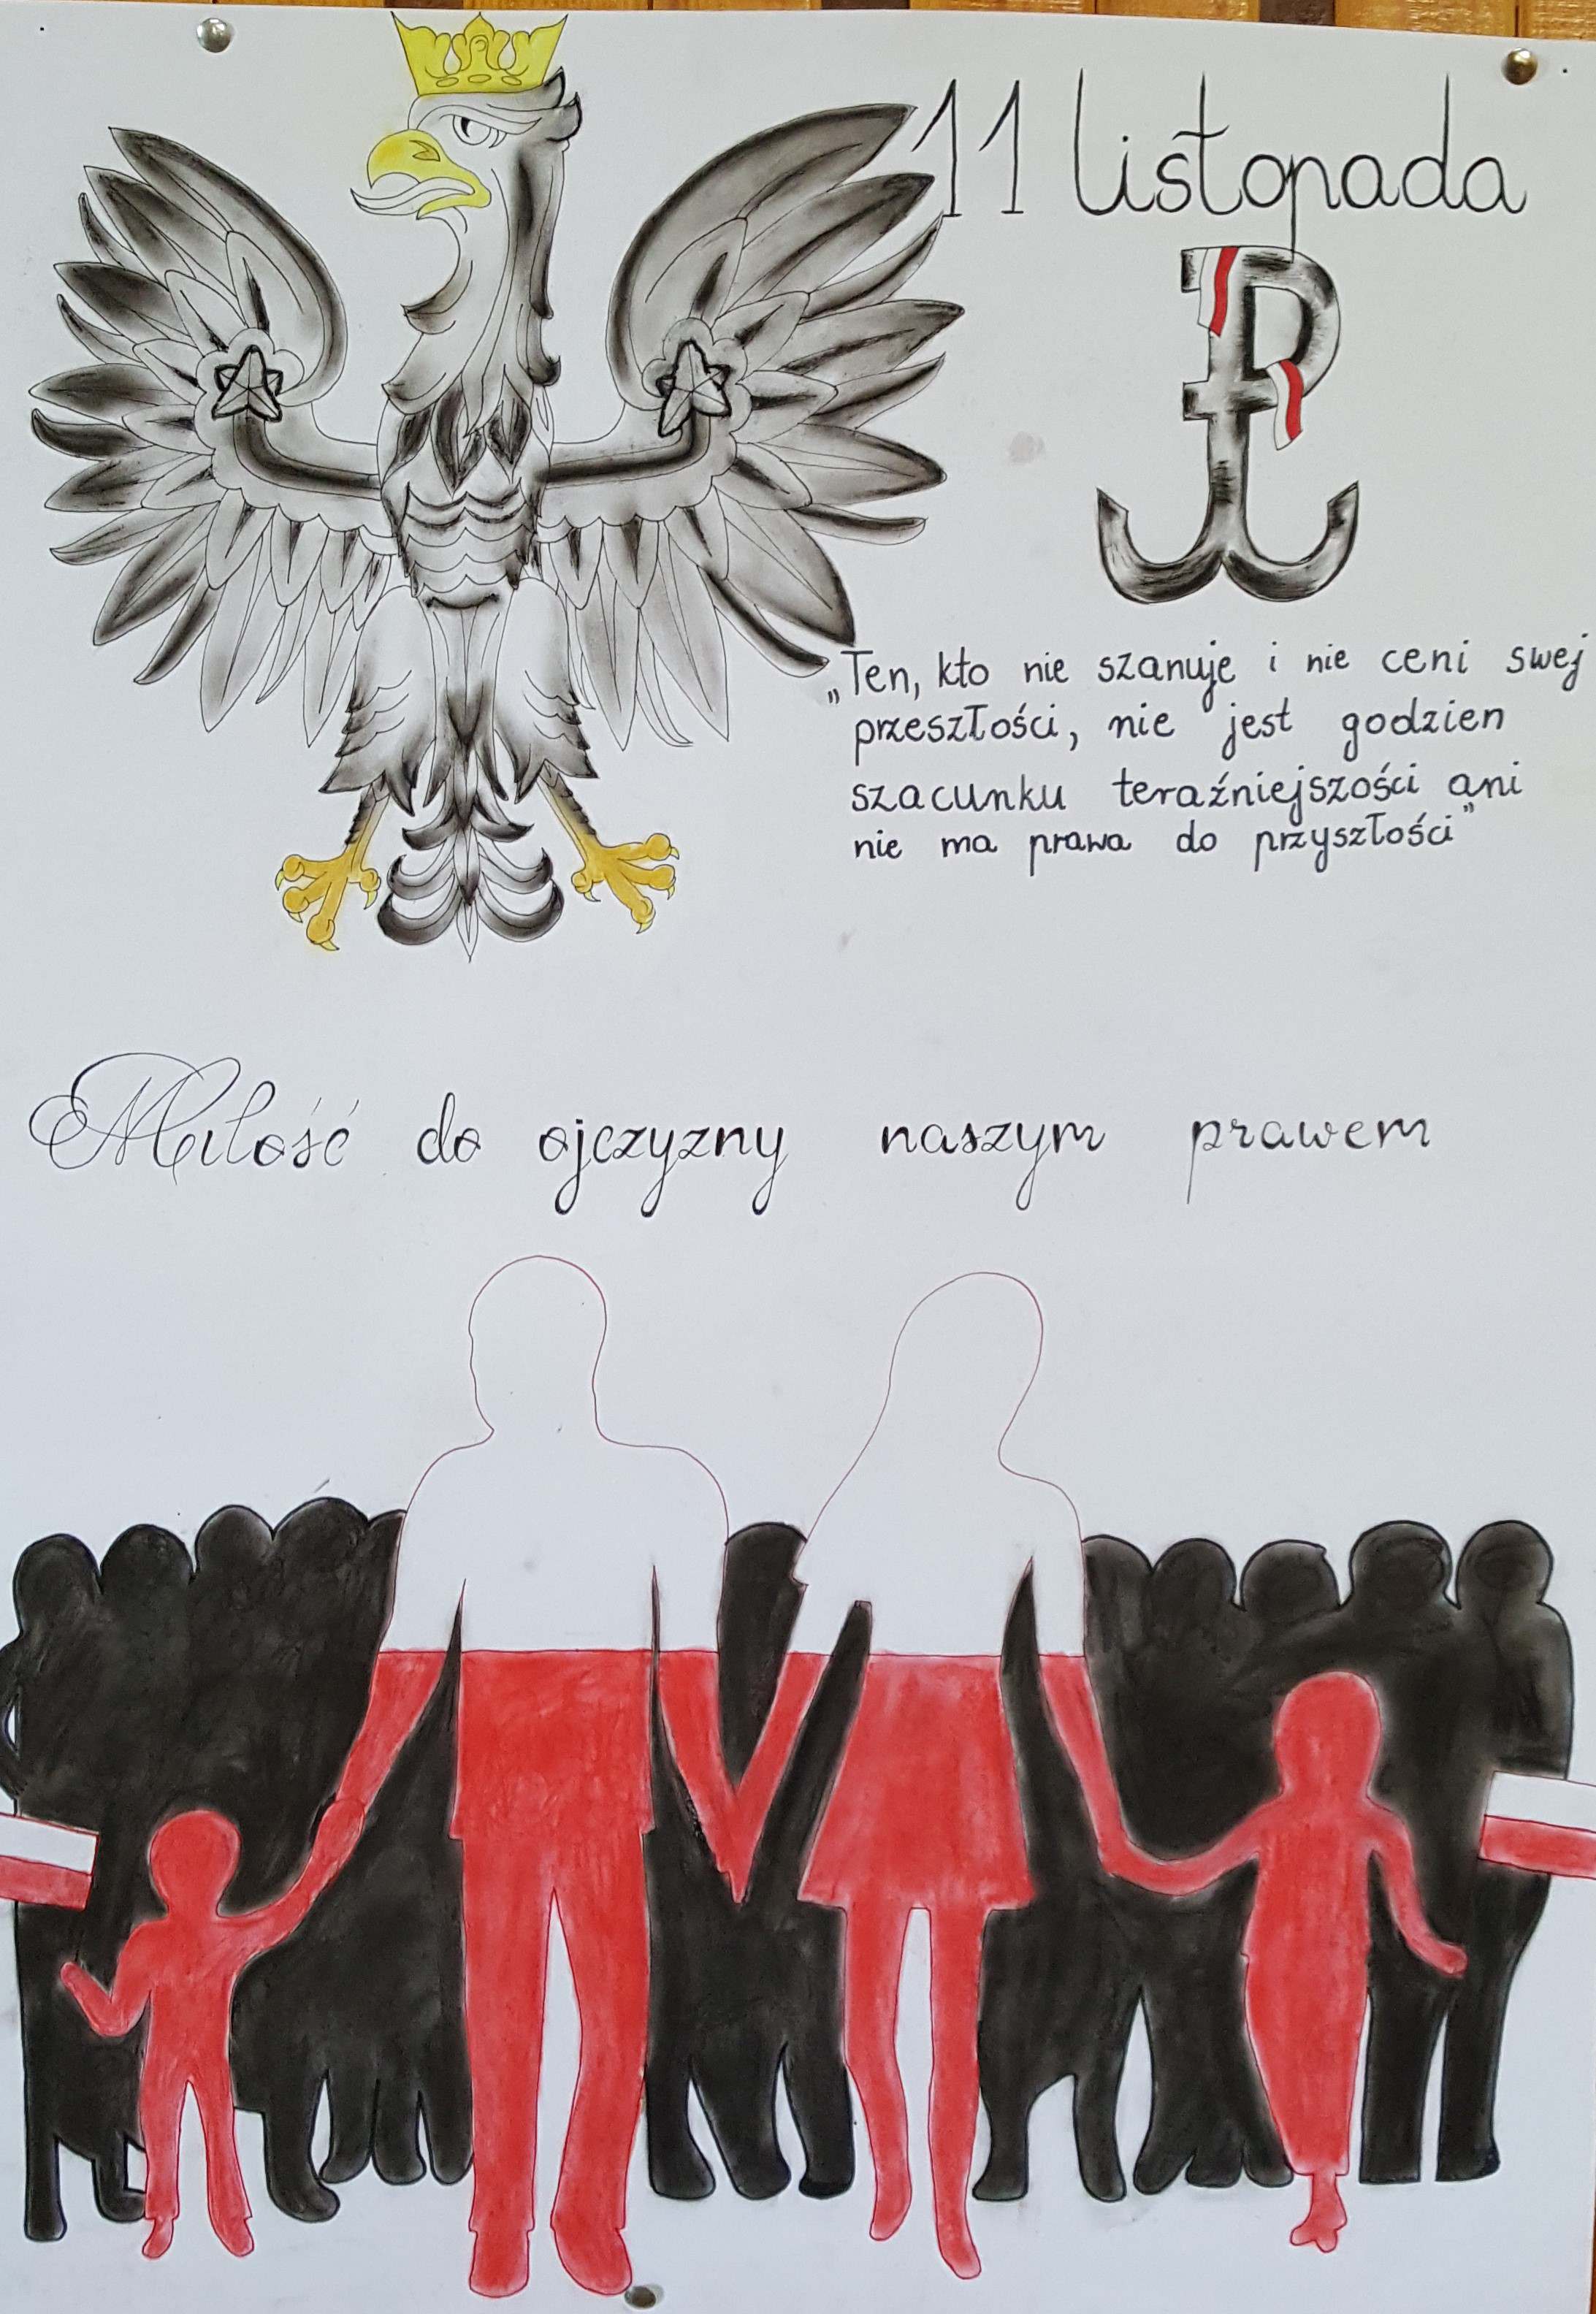 11 listopada
„Ten, kto nie szanuje i nie ceni swej
przeszłości, nie jest godzien
szacunku teraźniejszości ani
nie ma prawa do przyszłości”
Miłość do ojczyzny naszym prawem